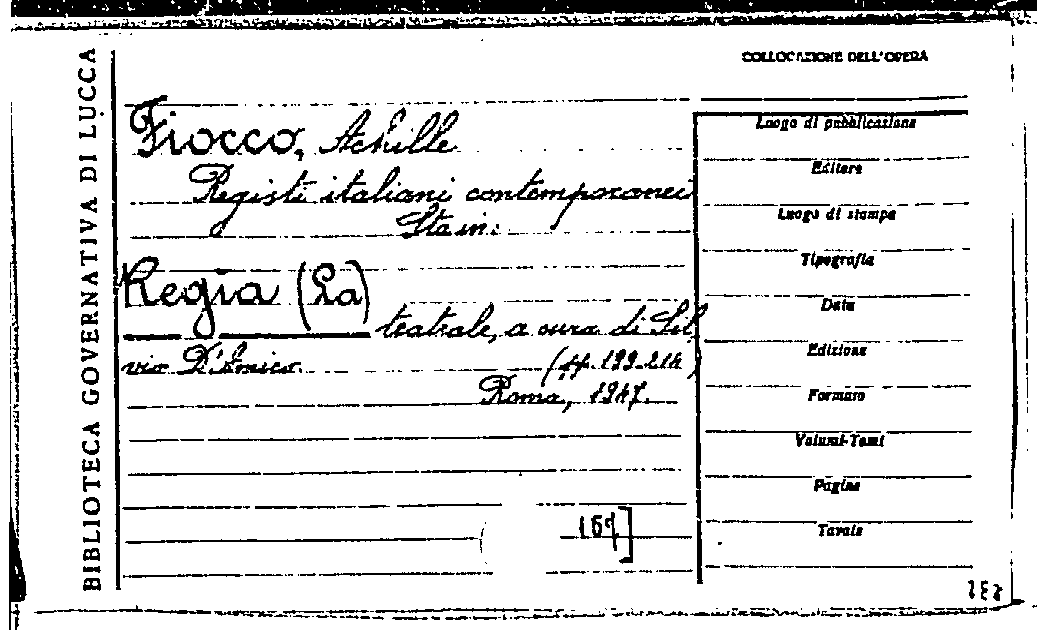 BIBLIOTECA GOVERNATIVA DI LUCCA
COLLOCAZIONE DELL'OPERA
Fiocco, Achille
Registi italiani contemporanei
Sta in:
Regia (La)
teatrale, a cura di Sil
vio D'Amico. (pp. 199-214)
Roma, 1947.
Luogo di pubblicazione
Editore
Luogo di stampa
Tipografia
Data
Edizione
Formato
Volumi-Tomi
Pagine
Tavole